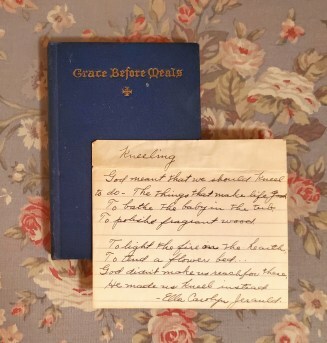 Grace Before Meals
Kneeling
God meant that we should kneel
to do - The things that make life good
To bathe the baby in the tub,
To polished fragrant wood
To light the fire on the hearth,
To tend a flower bed..
God didn't make us reach for these
He made us kneel instead
- Ella Carolyn